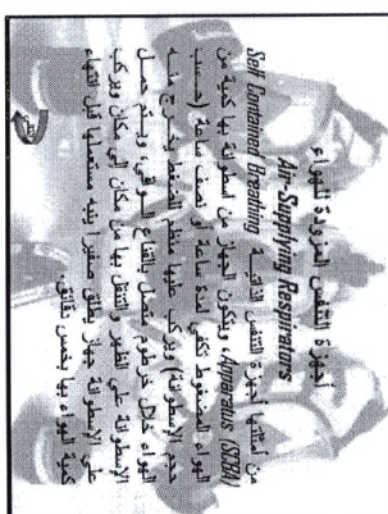 أجهزة التنفس المزودة للهواء
Air-Supplying Respirators
من أمثلتها أجهزة التنفس الذاتية Self Contained Breathing
Apparatus (SCBA)، ويتكون الجهاز من اسطوانة بها كمية من
الهواء المضغوط تكفي لمدة ساعة أو نصف ساعة (حسب
حجم الاسطوانة) ويركب عليها منظم للضغط يخرج منه
الهواء خلال خرطوم متصل بالقناع الواقي، ويتم حمل
الاسطوانة علي الظهر والتنقل بها من مكان إلي مكان ويركب
علي الاسطوانة جهاز يطلق صفيرا ينبه مستعملها قبل انتهاء
كمية الهواء بها بخمس دقائق.